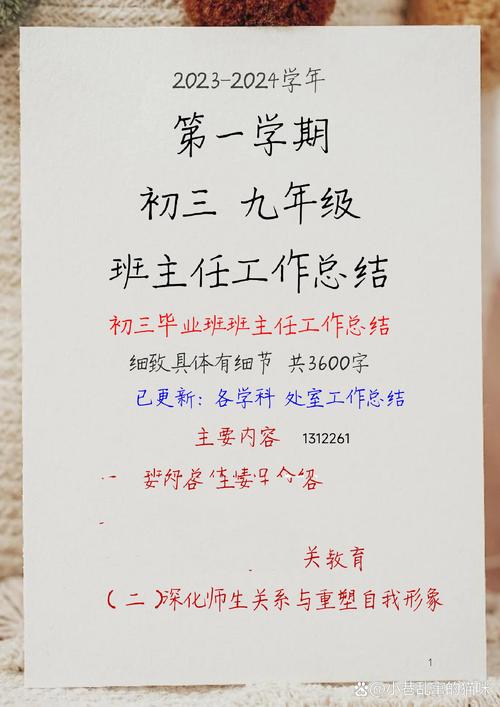 2023-2024学年
第一学期
初三 九年级
班主任工作总结
初三毕业班班主任工作总结
细致具体有细节 共3600字
已更新：各学科 处室工作总结
主要内容 1312261
一
关教育
（二）深化师生关系与重塑自我形象
1
小巷乱窜的猫咪